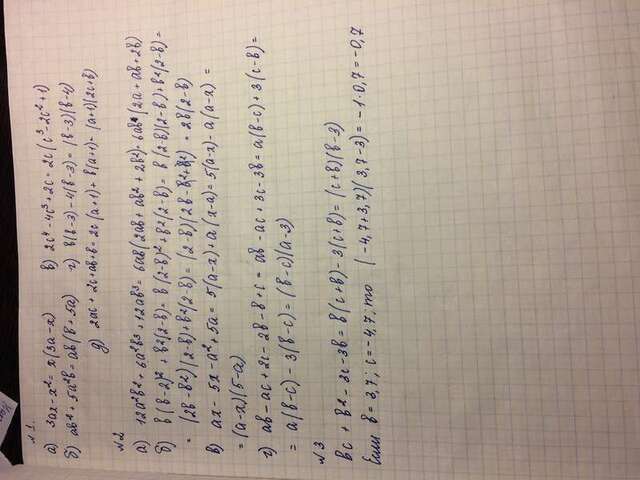 №1.
а) 3ax - x² = x(3a-x) в) 2c⁴ - 4c³ + 2c = 2c(c³ - 2c² + 1)
б) ab² + 5a²b = ab(b + 5a) г) b(b-3) - 4(b-3) = (b-3)(b-4)
д) 2ac + 2c + ab + b = 2c(a+1) + b(a+1) = (a+1)(2c+b)
№2
а) 12a²b² + 6a²b³ + 12ab³ = 6ab(2ab + ab² + 2b²) = 6ab (2a + ab + 2b)
б) b(b-2)² + b²(2-b) = b(2-b)² + b²(2-b) = b(2-b)(2-b) + b²(2-b) =
= (2b - b²)(2-b) + b²(2-b) = (2-b)(2b - b² + b²) = 2b(2-b)
в) ax - 5x - a² + 5a = 5(a-x) + a(x-a) = 5(a-x) - a(a-x) =
= (a-x)(5-a)
г) ab - ac + 2c - 2b - b + c = ab - ac + 3c - 3b = a(b-c) + 3(c-b) =
= a(b-c) - 3(b-c) = (b-c)(a-3)
№3
bc + b² - 3c - 3b = b(c+b) - 3(c+b) = (c+b)(b-3)
Если b = 3,7; c = -4,7; то (-4,7+3,7)(3,7-3) = -1·0,7 = -0,7